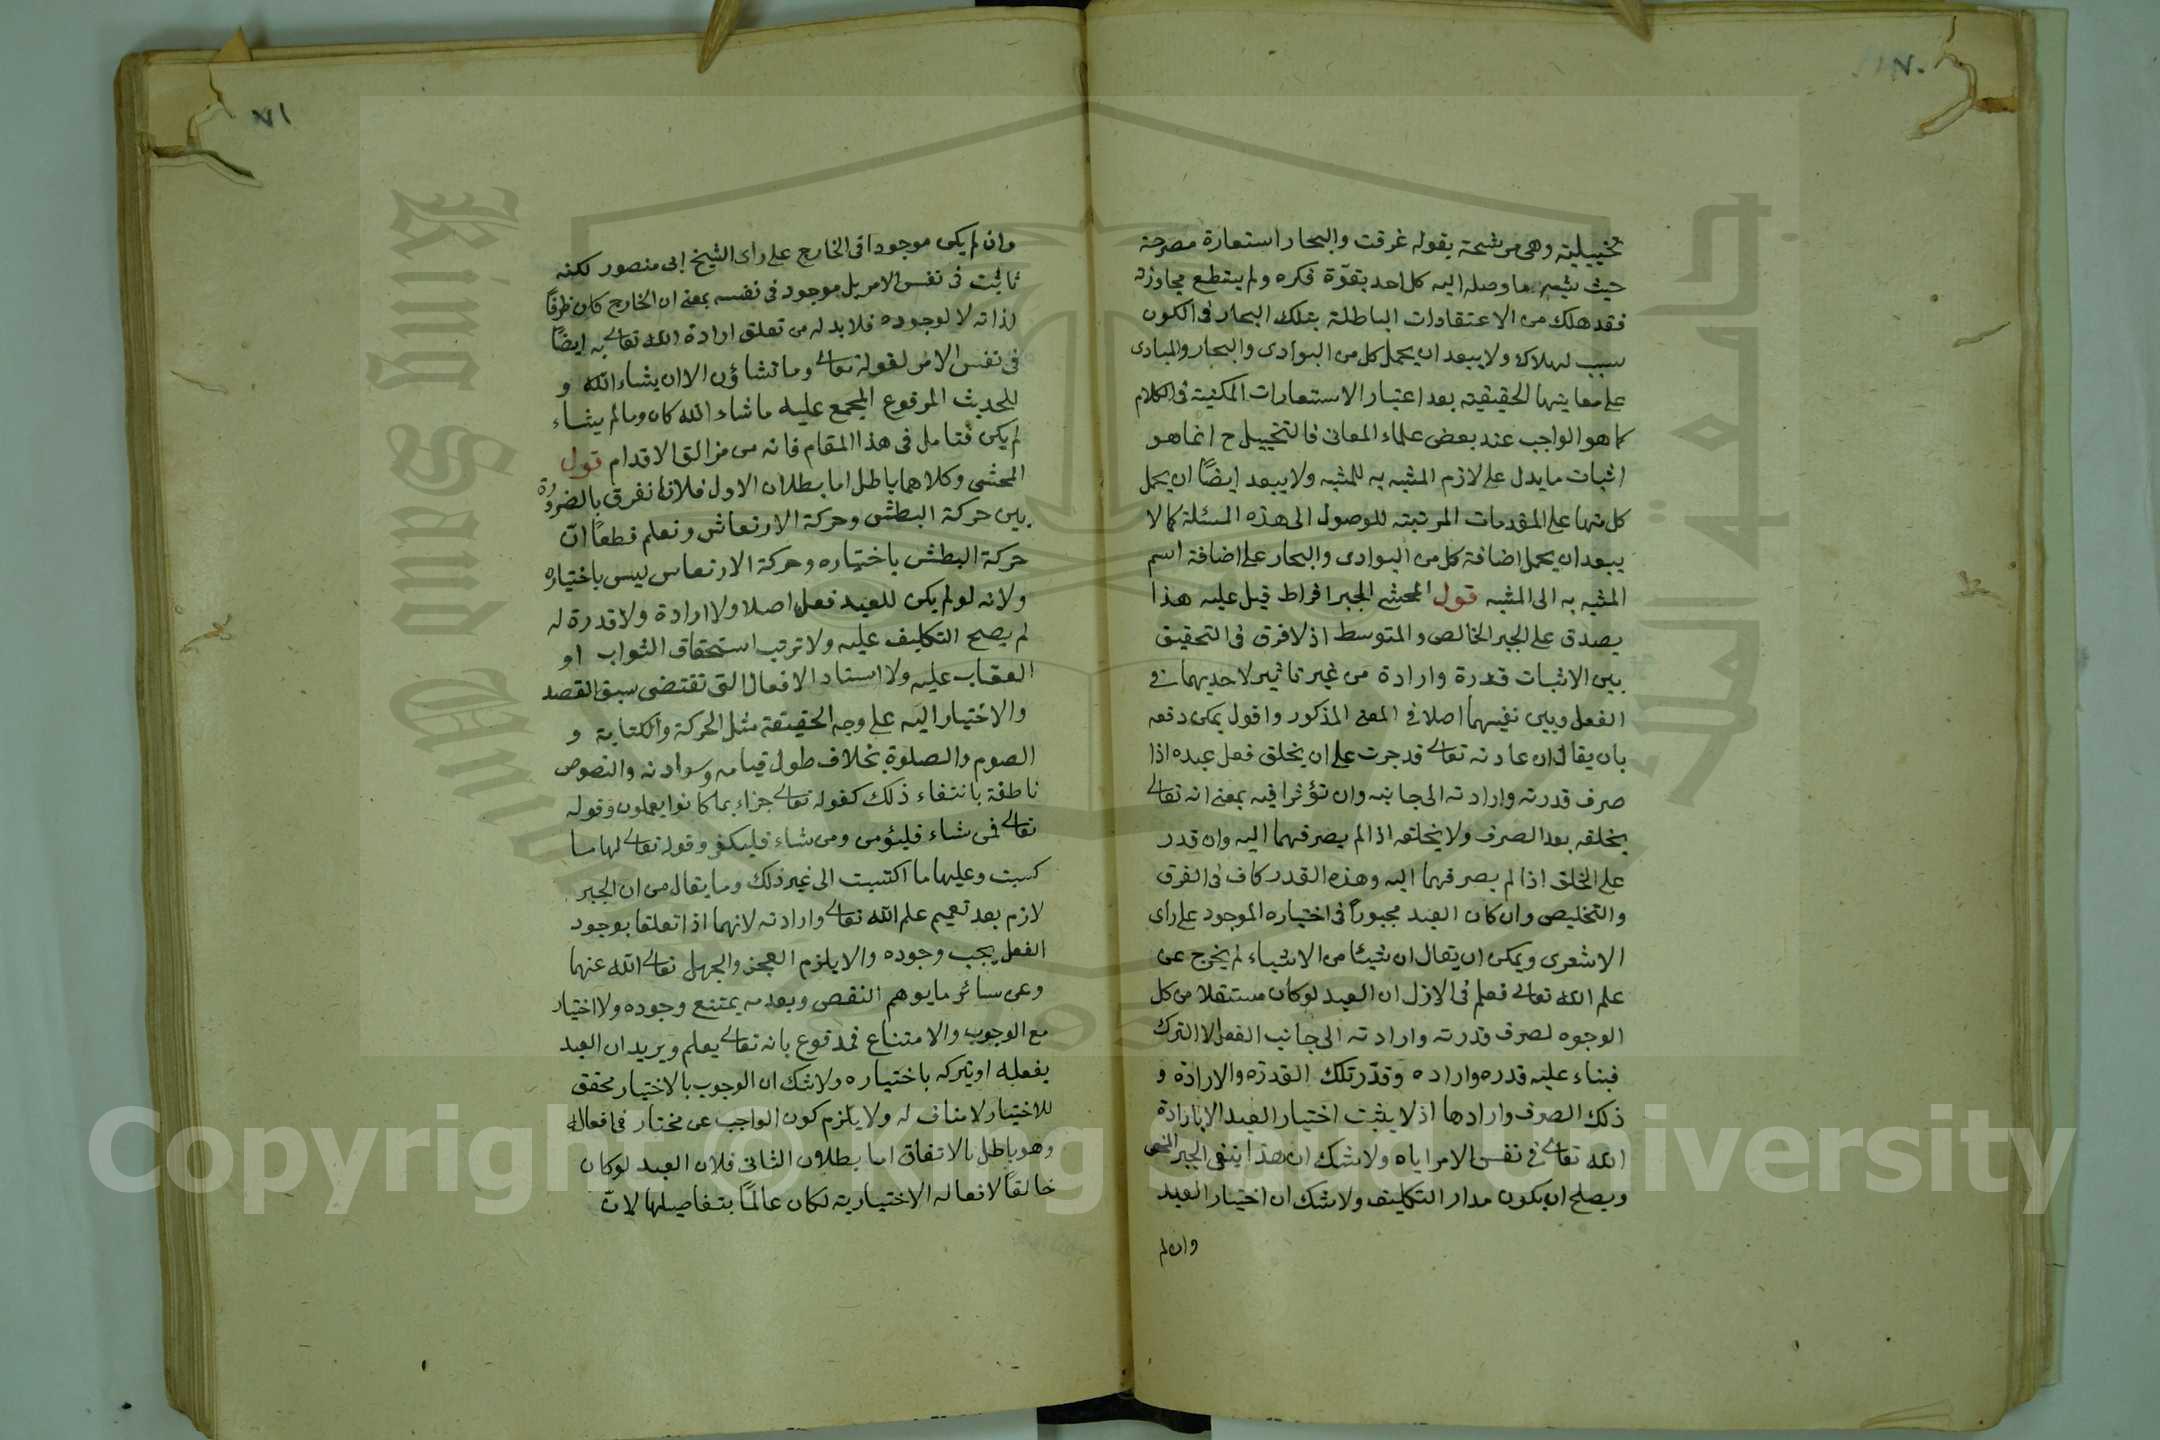 تخييلية وهى مرشحة بقوله غرقت والبحار استعارة مصرحة
حيث شبه ما وصل اليه كل احد بقوّة فكره ولم يستطع مجاوزته
فقد هلك من الاعتقادات الباطلة بتلك البحار فى الكون
سبب لهلاك ولا يبعد ان يحمل كل من البوادى والبحار والمبادى
على معاينها الحقيقية بعد اعتبار الاستعارات المكنية فى الكلام
كما هو الواجب عند بعض علماء المعانى فالتخييل ح انما هو
اثبات ما يدل على لازم المشبه به للمشبه ولا يبعد ايضًا ان يحمل
كل منها على المقدمات المرتبة للوصول الى هذه المسئلة كما لا
يبعد ان يحمل اضافة كل من البوادى والبحار على اضافة اسم
المشبه به الى المشبه قول المحشى الجبر افراط قيل عليه هذا
يصدق على الجبر الخالص والمتوسط اذ لا فرق فى التحقيق
بين الاثبات قدرة وارادة من غير تاثير لاحديهما فى
الفعل وبين نفيهما اصلا فى المعنى المذكور واقول يمكن دفعه
بان يقال ان عادته تعالى قد جرت على ان يخلق فعل عبده اذا
صرف قدرته وارادته الى جانبه وان تؤثرا فيه بمعنى انه تعالى
يخلقه بعد الصرف ولا يخلقه اذا لم يصرفهما اليه وان قدر
على الخلق اذا لم يصرفهما اليه وهذه القدر كاف فى الفرق
والتخليص وان كان العبد مجبورًا فى اختياره الموجود على راى
الاشعرى ويمكن ان يقال ان شيئا من الاشياء لم يخرج عن
علم الله تعالى فعلم فى الازل ان العبد لو كان مستقلا من كل
الوجوه لصرف قدرته وارادته الى جانب الفعل لا الترك
فبناء عليه قدره واراده وقدّر تلك القدرة والارادة و
ذلك الصرف وارادها اذ لا يثبت اختيار العبد الا بارادة
الله تعالى فى نفس الامر اياه ولا شك ان هذا ينفى الجبر المحض
ويصلح ان يكون مدار التكليف ولا شك ان اختيار العبد
وان لم
٧١
وان لم يكن موجودا فى الخارج على راى الشيخ ابى منصور لكنه
ثابت فى نفس الامر بل موجود فى نفسه بمعنى ان الخارج كان ظرفًا
لذاته لا لوجوده فلا بد له من تعلق ارادة الله تعالى به ايضًا
فى نفس الامر لقوله تعالى وما تشاؤن الا ان يشاء الله و
للحديث المرفوع المجمع عليه ما شاء الله كان وما لم يشاء
لم يكن فتامل فى هذا المقام فانه من مزالق الاقدام قول
المحشى وكلاهما باطل اما بطلان الاول فلانا نفرق بالضرورة
بين حركة البطش وحركة الارتعاش ونعلم قطعًا انّ
حركة البطش باختياره وحركة الارتعاس ليس باختياره
ولانه لو لم يكن للعبد فعل اصلا ولا ارادة ولا قدرة له
لم يصح التكليف عليه ولا ترتب استحقاق الثواب او
العقاب عليه ولا اسناد الافعال التى تقتضى سبق القصد
والاختيار اليه على وجه الحقيقة مثل الحركة والكتابة و
الصوم والصلوة بخلاف طول قيامه وسواد نه والنصوص
ناطقة بانتفاء ذلك كقوله تعالى جزاء بما كانوا يعملون وقوله
تعالى فمن شاء فليؤمن ومن شاء فليكفر وقوله تعالى لها ما
كسبت وعليها ما اكتسبت الى غير ذلك وما يقال من ان الجبر
لازم بعد تعميم علم الله تعالى وارادته لانهما اذا تعلقا بوجود
الفعل يجب وجوده والا يلزم العجز والجهل تعالى الله عنهما
وعن سائر ما يوهم النقص وبعدمه يمتنع وجوده ولا اختيار
مع الوجوب والامتناع فمدفوع بانه تعالى يعلم ويريد ان العبد
يفعله او يتركه باختياره ولا شك ان الوجوب بالاختيار محقق
للاختيار لا مناف له ولا يلزم كون الواجب عن مختار فى افعاله
وهو باطل بالاتفاق اما بطلان الثانى فلان العبد لو كان
خالقًا لافعاله الاختيارية لكان عالمًا بتفاصيلها لانّ
Copyright © King Saud University